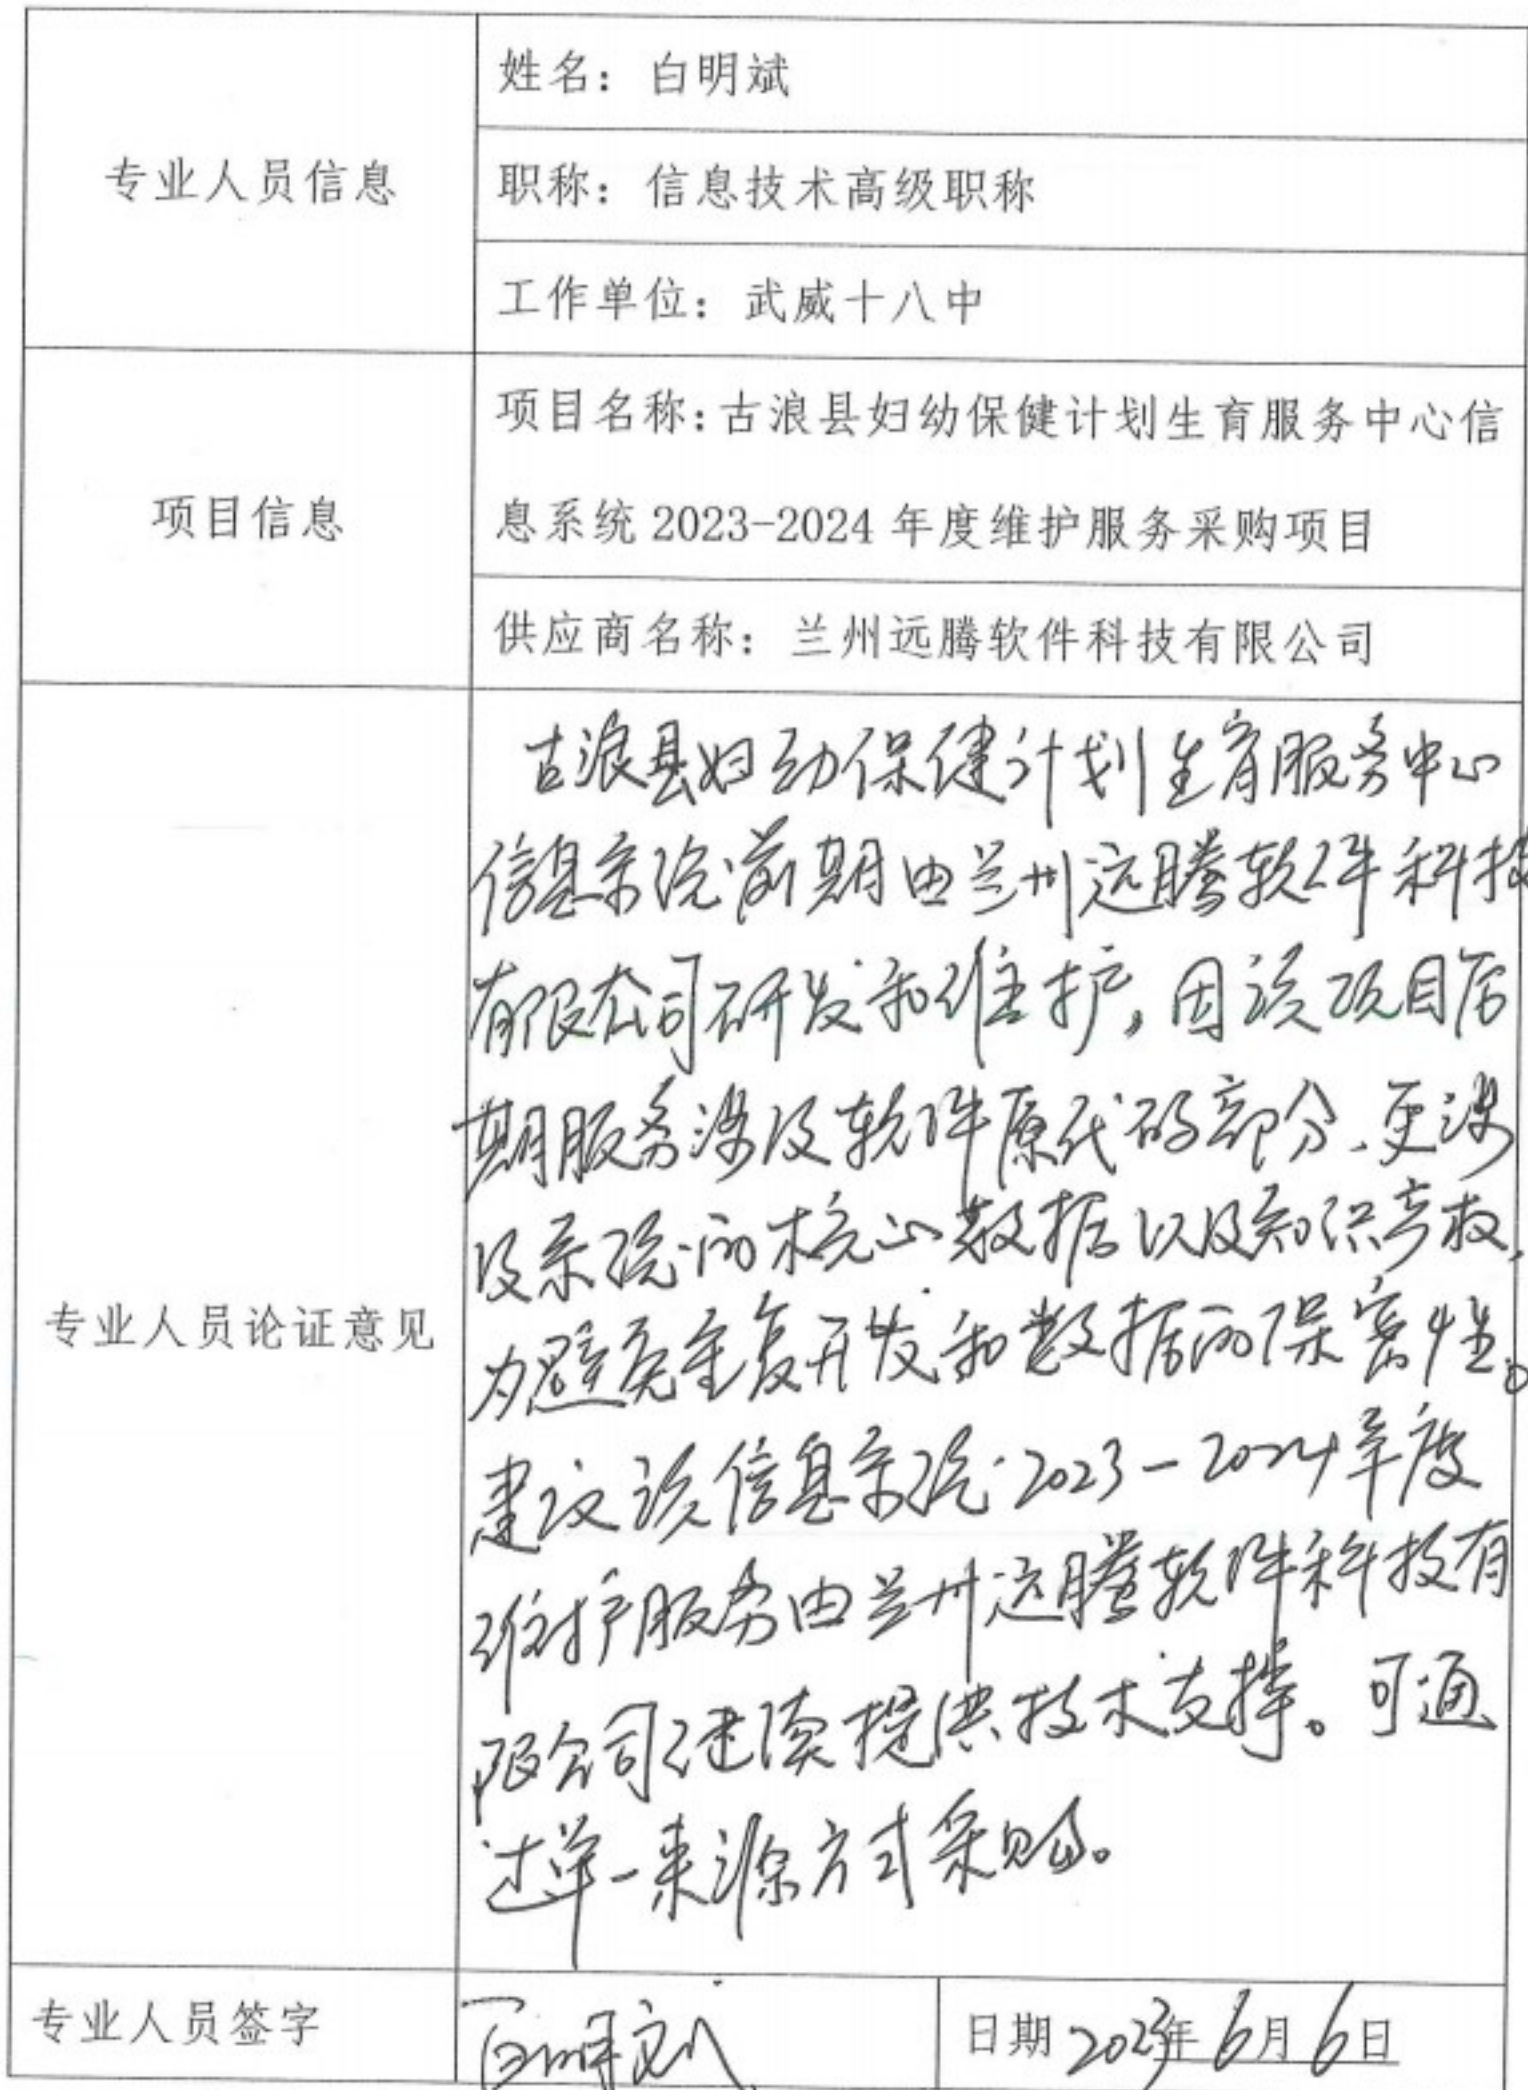 专业人员信息
姓名：白明斌
职称：信息技术高级职称
工作单位：武威十八中
项目信息
项目名称：古浪县妇幼保健计划生育服务中心信
息系统 2023-2024 年度维护服务采购项目
供应商名称：兰州远腾软件科技有限公司
专业人员论证意见
古浪县妇幼保健计划生育服务中心
信息系统前期由兰州远腾软件科技
有限公司研发和维护，因该项目后
期服务涉及软件原代码部分、更涉
及系统的核心数据以及知识产权，
为避免重复开发和数据的保密性。
建议该信息系统2023-2024年度
维护服务由兰州远腾软件科技有
限公司继续提供技术支撑。可通
过单一来源方式采购。
专业人员签字
白明斌
日期 2023年 6月 6日